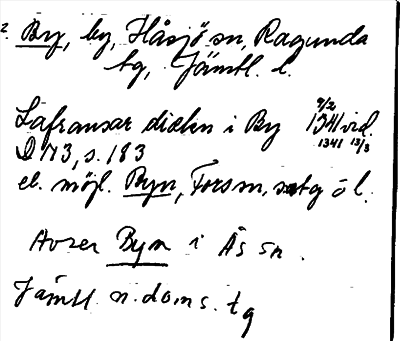 2. By, by, Håsjö sn, Ragunda
tg, Jämtl. l.
9/2
Lafransar diekn i By 1341 vid.
1341 13/3
D 173, s. 183
el. möjl. Byn, Fors sn, s tg o l.
Avser Byn i Ås sn.
Jämtl. n. doms. tg